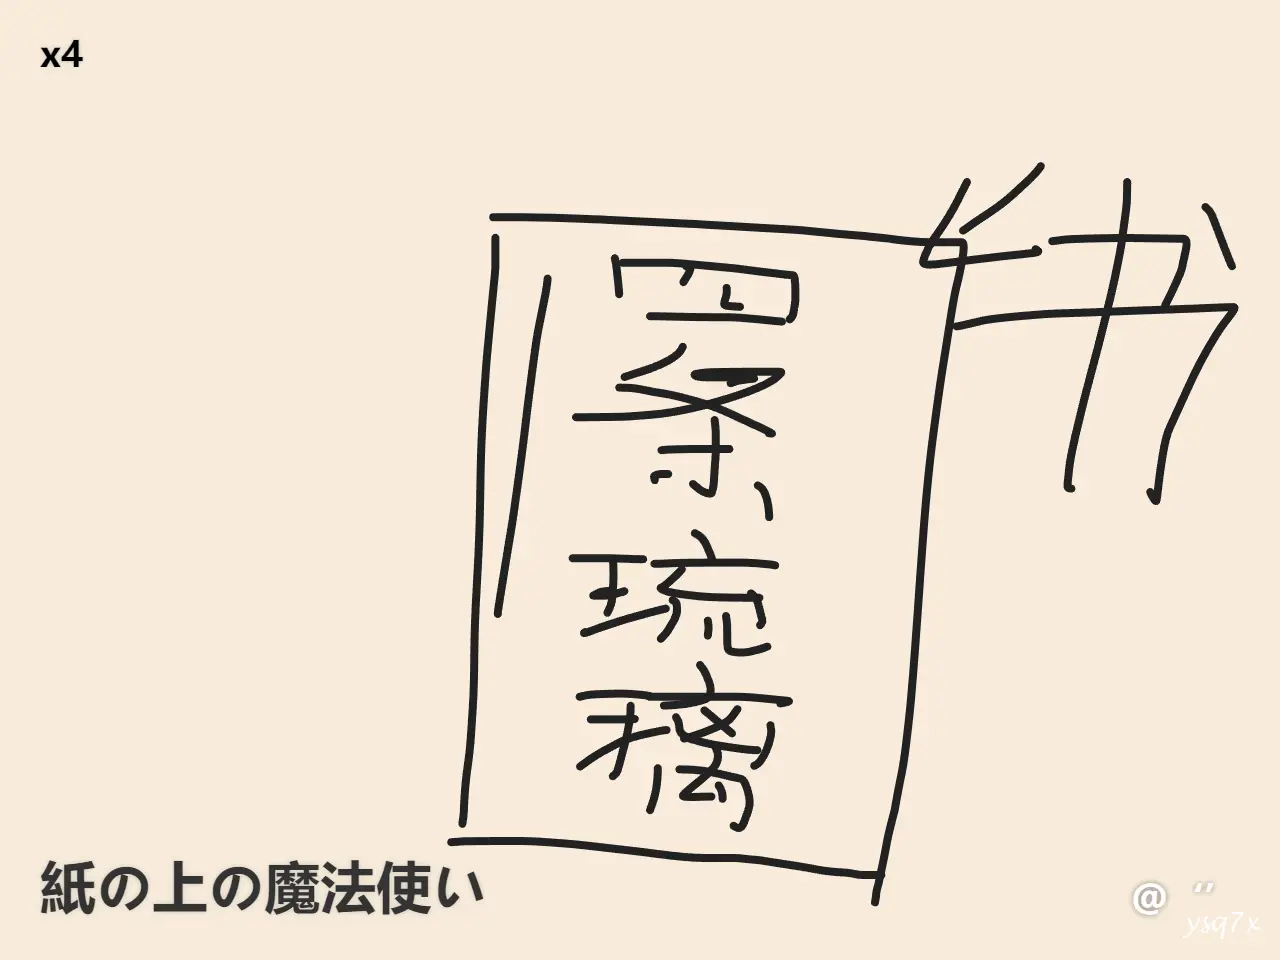 x4
四条
琉璃
紙の上の魔法使い
@ ysq7x